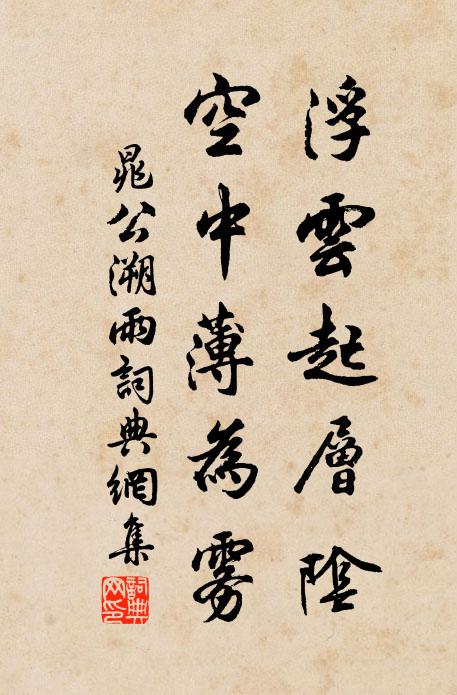 浮雲起層陰
空中薄為霧
晁公溯雨詞典網集
詞典